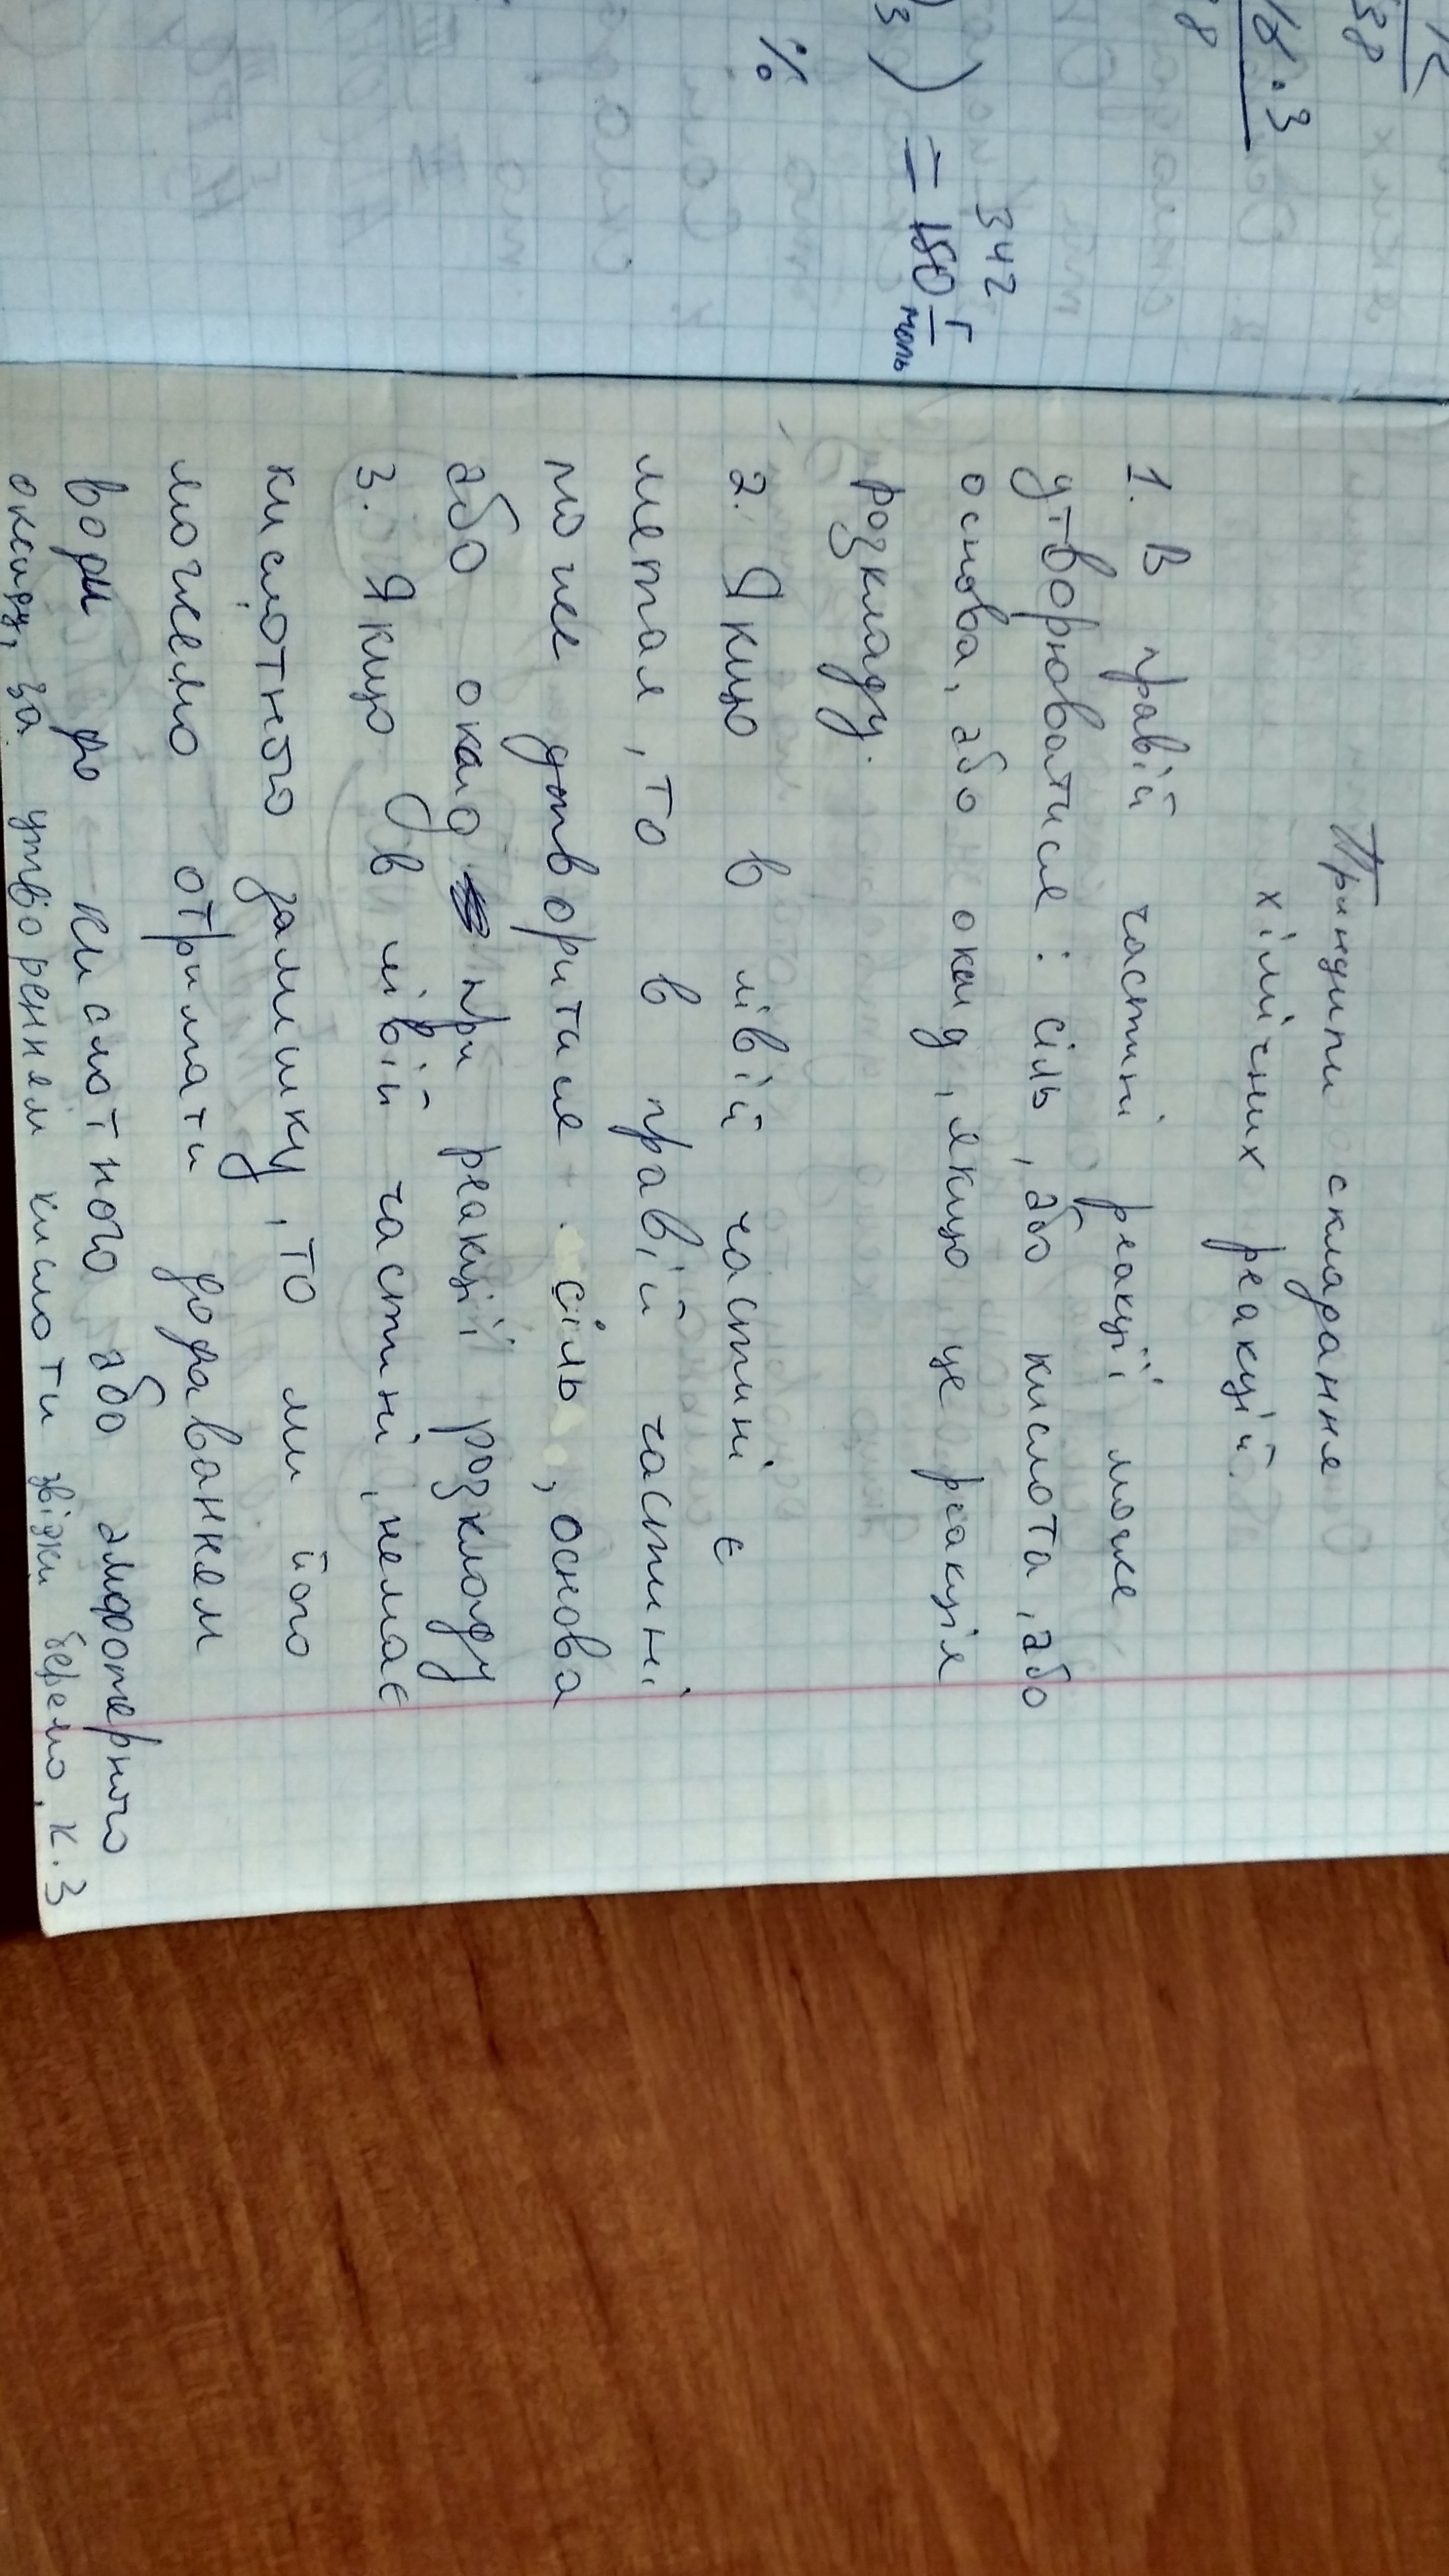 12
38
18 · 3
8
3) = 150 г/моль
342
%
Принципи складання
хімічних реакцій.
1. В правій частині реакції може
утворюватися: сіль, або кислота, або
основа, або оксид, якщо це реакція
розкладу.
2. Якщо в лівій частині є
метал, то в правій частині
може утворитися сіль, основа
або оксид при реакції розкладу
3. Якщо в лівій частині, немає
кислотного залишку, то ми його
можемо отримати додаванням
води до кислотного або амфотерного
оксиду, за утворенням кислоти звідки беремо, к.З